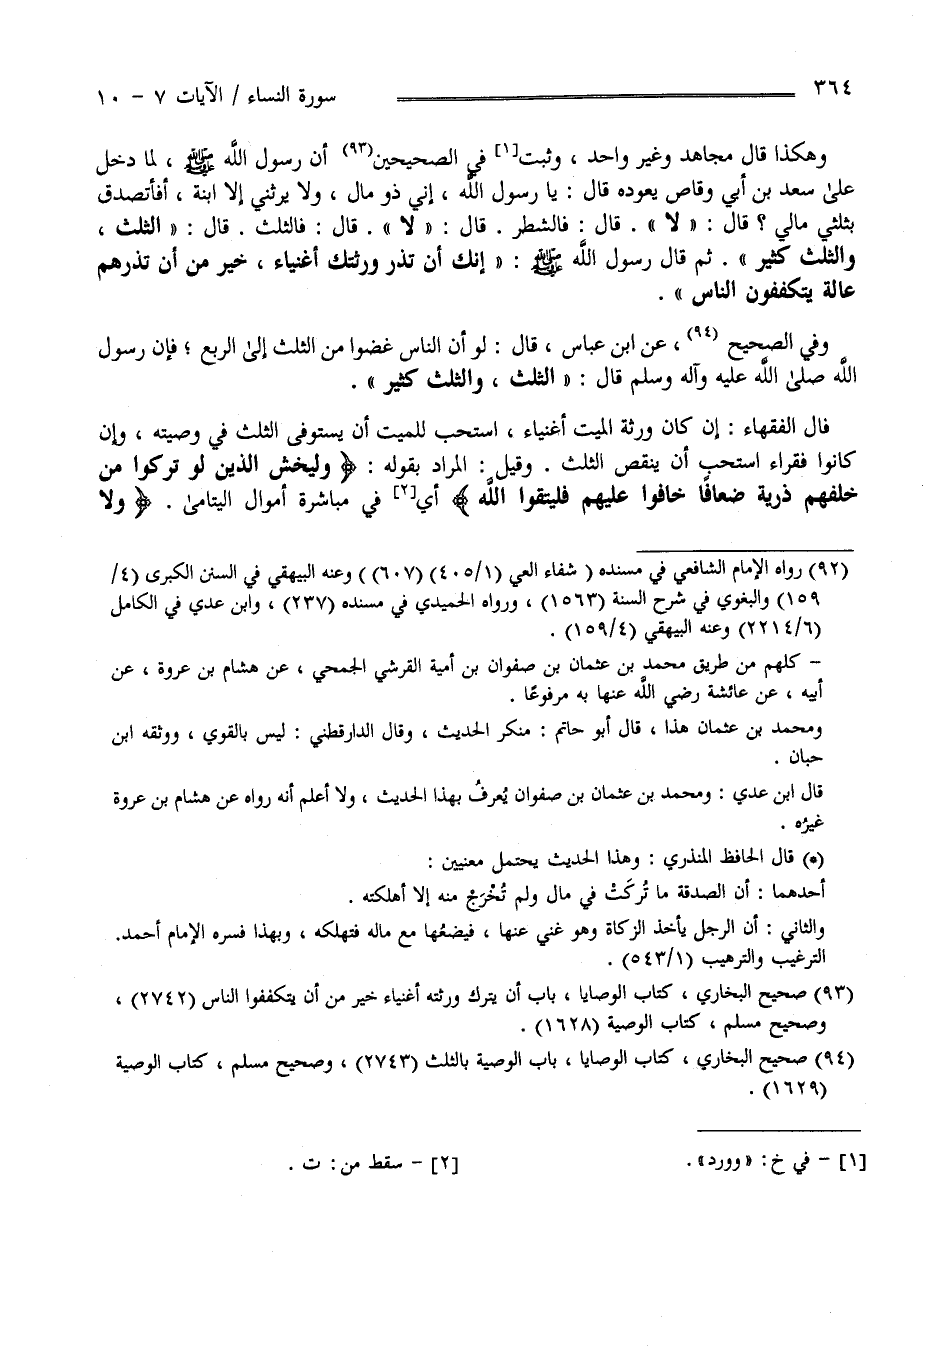 ٣٦٤ سورة النساء / الآيات ٧ - ١٠
وهكذا قال مجاهد وغير واحد ، وثبت[١] في الصحيحين(٩٣) أن رسول اللَّه ﷺ ، لما دخل
علىٰ سعد بن أبي وقاص يعوده قال : يا رسول اللَّه ، إني ذو مال ، ولا يرثني إلا ابنة ، أفأتصدق
بثلثي مالي ؟ قال : « لا » . قال : فالشطر . قال : « لا » . قال : فالثلث . قال : « الثلث ،
والثلث كثير » . ثم قال رسول اللَّه ﷺ : « إنك أن تذر ورثتك أغنياء ، خير من أن تذرهم
عالة يتكففون الناس » .
وفي الصحيح (٩٤) ، عن ابن عباس ، قال : لو أن الناس غضوا من الثلث إلىٰ الربع ؛ فإن رسول
اللَّه صلىٰ اللَّه عليه وآله وسلم قال : « الثلث ، والثلث كثير » .
قال الفقهاء : إن كان ورثة الميت أغنياء ، استحب للميت أن يستوفى الثلث في وصيته ، وإن
كانوا فقراء استحب أن ينقص الثلث . وقيل : المراد بقوله : ﴿ وليخش الذين لو تركوا من
خلفهم ذرية ضعافًا خافوا عليهم فليتقوا اللَّه ﴾ أي[٢] في مباشرة أموال اليتامىٰ . ﴿ ولا
(٩٢) رواه الإمام الشافعي في مسنده ( شفاء العي (٤٠٥/١) (٦٠٧) ) وعنه البيهقي في السنن الكبرى (٤/
١٥٩) والبغوي في شرح السنة (١٥٦٣) ، ورواه الحميدي في مسنده (٢٣٧) ، وابن عدي في الكامل
(٢٢١٤/٦) وعنه البيهقي (١٥٩/٤) .
- كلهم من طريق محمد بن عثمان بن صفوان بن أمية القرشي الجمحي ، عن هشام بن عروة ، عن
أبيه ، عن عائشة رضي اللَّه عنها به مرفوعًا .
ومحمد بن عثمان هذا ، قال أبو حاتم : منكر الحديث ، وقال الدارقطني : ليس بالقوي ، ووثقه ابن
حبان .
قال ابن عدي : ومحمد بن عثمان بن صفوان يُعرفُ بهذا الحديث ، ولا أعلم أنه رواه عن هشام بن عروة
غيرُه .
(*) قال الحافظ المنذري : وهذا الحديث يحتمل معنيين :
أحدهما : أن الصدقة ما تُركَتْ في مال ولم تُخْرَجْ منه إلا أهلكته .
والثاني : أن الرجل يأخذ الزكاة وهو غني عنها ، فيضعُها مع ماله فتهلكه ، وبهذا فسره الإمام أحمد.
الترغيب والترهيب (٥٤٣/١) .
(٩٣) صحيح البخاري ، كتاب الوصايا ، باب أن يترك ورثته أغنياء خير من أن يتكففوا الناس (٢٧٤٢) ،
وصحيح مسلم ، كتاب الوصية (١٦٢٨) .
(٩٤) صحيح البخاري ، كتاب الوصايا ، باب الوصية بالثلث (٢٧٤٣) ، وصحيح مسلم ، كتاب الوصية
(١٦٢٩) .
[١] - في خ : «وورد» . [٢] - سقط من : ت .